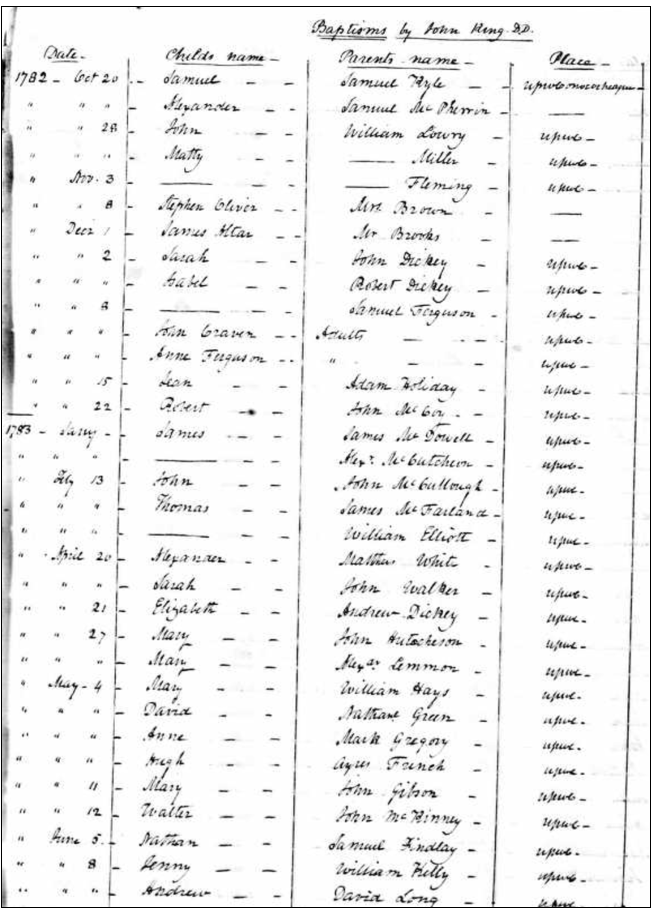 Baptisms by John King D.D.
Date - Childs name - Parents name - Place -
1782 - Oct 20 - Samuel - - Samuel Kyle -
" " " - Alexander - - Samuel McPherrin - —
" " 28 - John - - William Lowry - upwe -
" " " - Matty - - — Miller - upwe -
" Nov. 3 - — - - — Fleming - upwe -
" " 8 - Stephen Oliver - - Mrs Brown - —
" Decr 1 - James Altar - - Mr Brooks - —
" " 2 - Sarah - - John Dickey - upwe -
" " " - Isabel - - Robert Dickey - upwe -
" " 8 - — - - Samuel Ferguson - upwe -
" " " - John Craven - - Adults - - - upwe -
" " " - Anne Ferguson - - " - - - upwe -
" " 15 - Jean - - Adam Holiday - upwe -
" " 22 - Robert - - John McCoy - - upwe -
1783 - Jany - James - - James McDowell - upwe -
" " " - — - - Alexr McCutcheon - upwe -
" Feby 13 - John - - John McCullough - upwe -
" " " - Thomas - - James McFarland - upwe -
" " " - — - - William Elliott - upwe -
" April 20 - Alexander - - Matthew White - upwe -
" " " - Sarah - - John Walker - upwe -
" " 21 - Elizabeth - - Andrew Dickey - upwe -
" " 27 - Mary - - John Hutcheson - upwe -
" " " - Mary - - Alexdr Lemmon - upwe -
" May - 4 - Mary - - William Hays - upwe -
" " " - David - - Nathanl Green - upwe -
" " " - Anne - - Mark Gregory - upwe -
" " " - Hugh - - Ayres French - upwe -
" " 11 - Mary - - John Gibson - upwe -
" " 12 - Walter - - John McKinney - upwe -
" June 5. - Nathan - - Samuel Findlay - upwe -
" " 8 - Jenny - - William Kelly - upwe -
" " " - Andrew - - David Long - upwe -